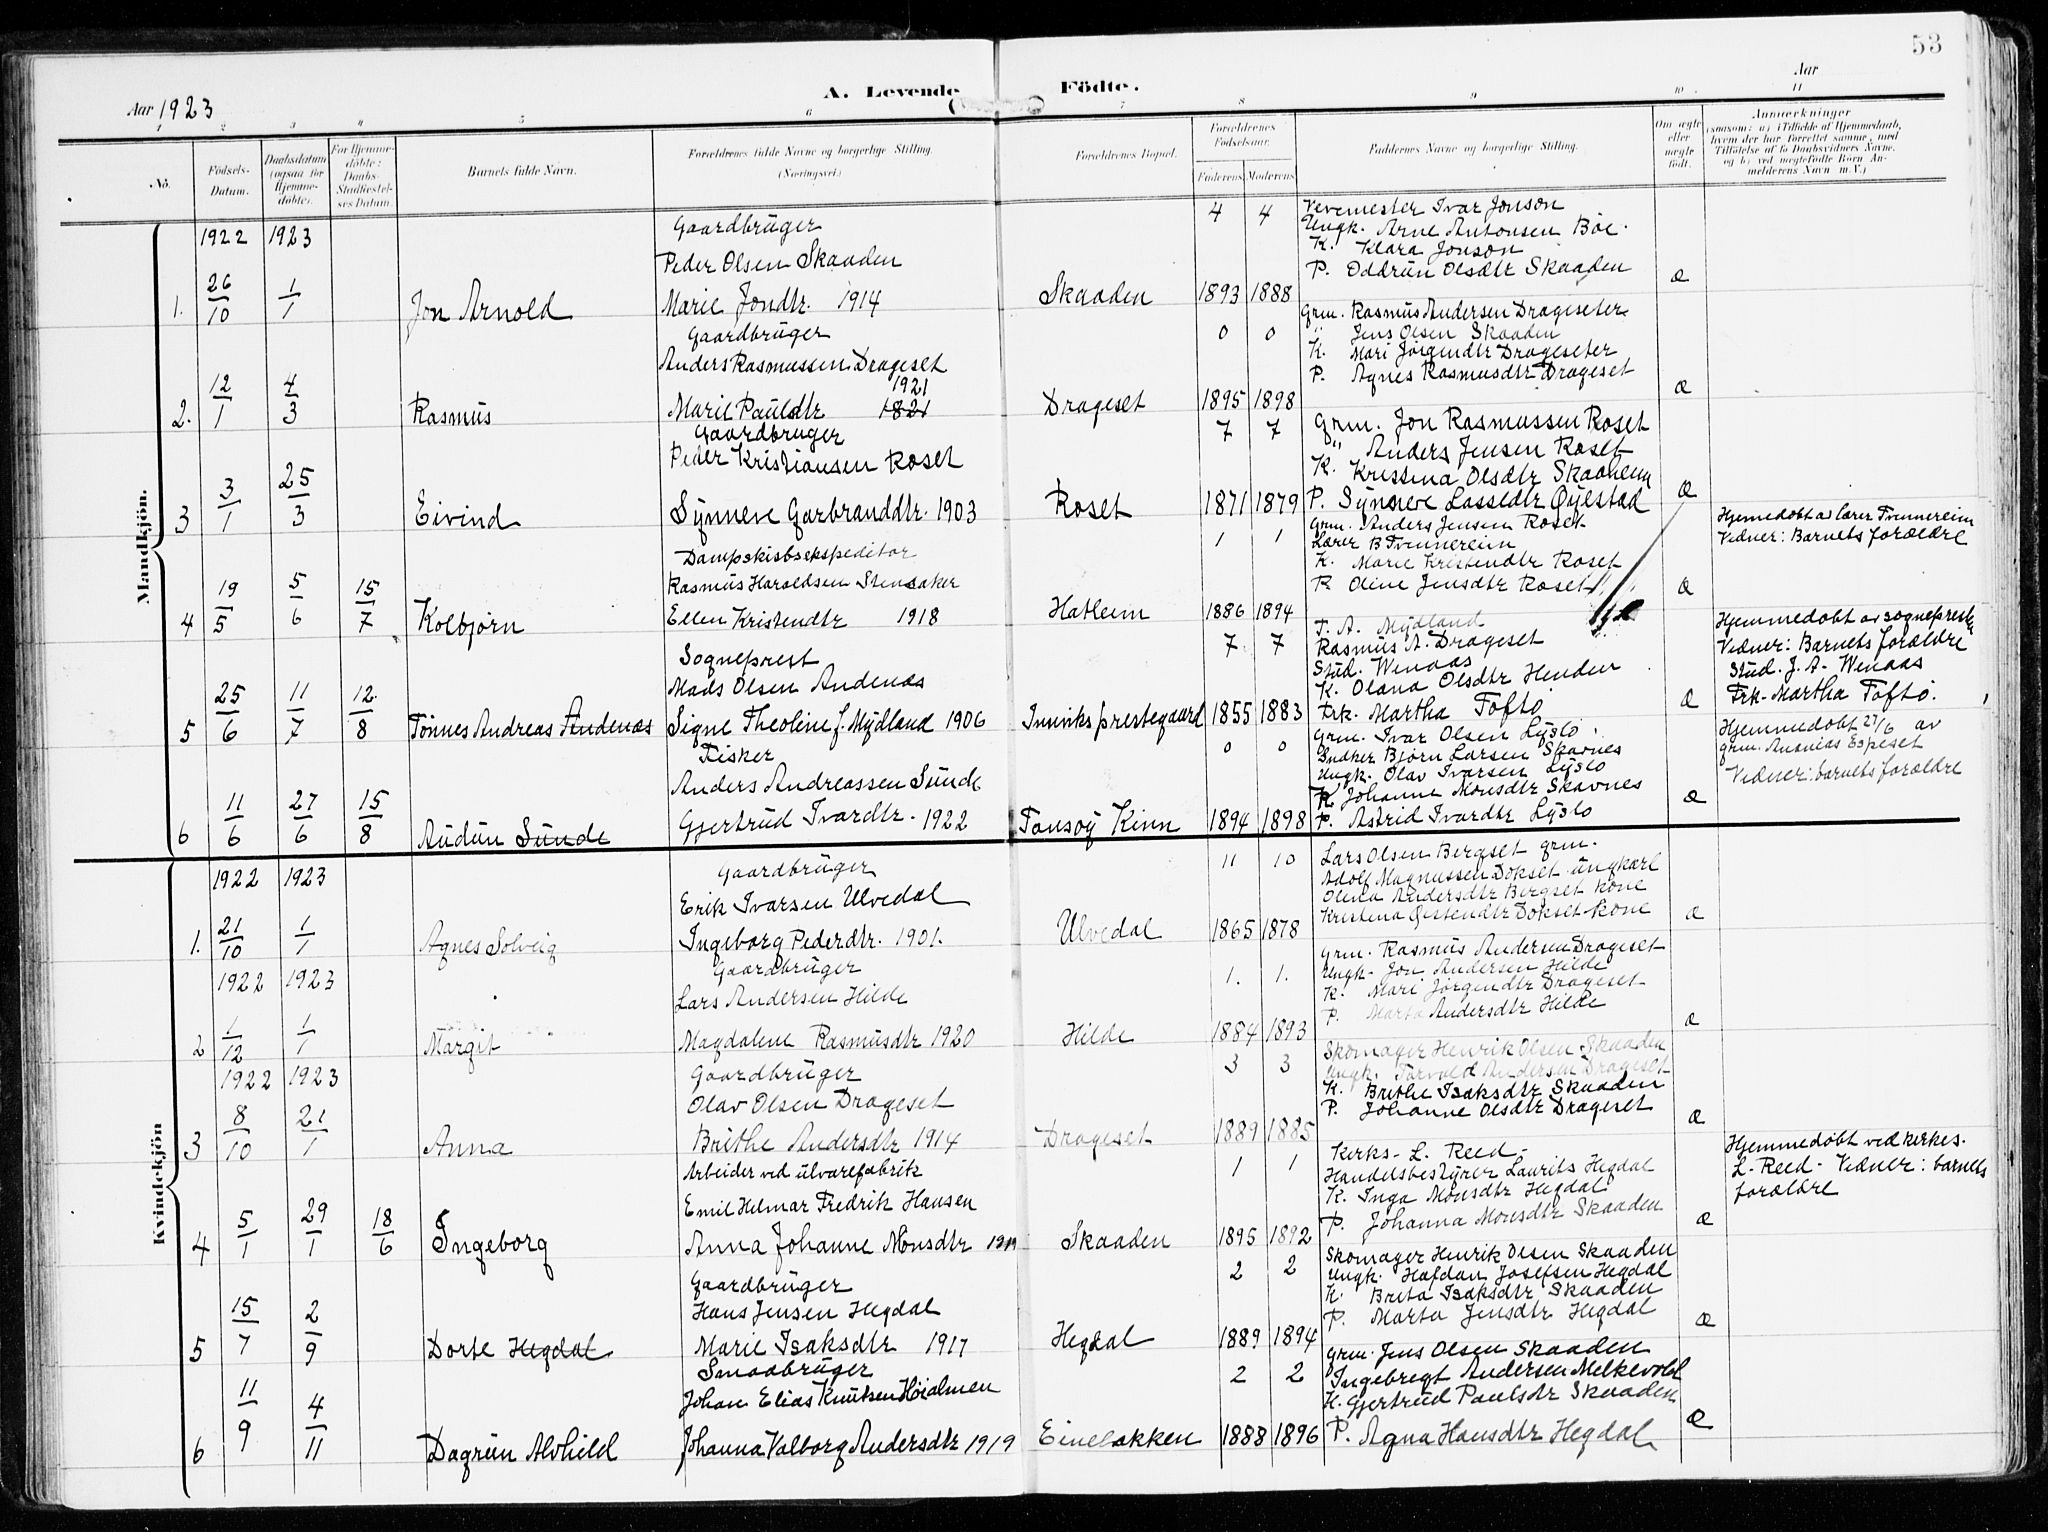 53
A. Levende Födte.
Aar 1923
Aar
1 2 3 4 5 6 7 8 9 10 11
No.
Födsels-Datum.
Daabsdatum (ogsaa for Hjemmedöbte).
For Hjemmedöbte: Daabs-Stadfæstelses Datum.
Barnets fulde Navn.
Forældrenes fulde Navne og borgerlige Stilling. (Næringsvei.)
Forældrenes Bopæl.
Forældrenes Födselsaar.
Faderens Moderens
Faddernes Navne og borgerlige Stilling.
Om ægte eller uægte födt.
Anmærkninger
(saasom: a) i Tilfælde af Hjemmedaab, hvem der har forrettet samme, med Tilföielse af to Daabsvidners Navne, og b) ved uægtefödte Börn Anmelderens Navn m. V.)
Mandkjön.
1922 1923
1. 26/10 1/1 Jon Arnold
Gaardbrüger
Peder Olsen Skaaden
Marie Jondtr. 1914
Skaaden
4 4
1893 1888
Vevemester Ivar Jonson
Ungk. Arne Antonsen Böe.
K. Klara Jonson
P. Oddrün Olsdtr Skaaden
Æ
2. 12/1 4/3 Rasmüs
Gaardbrüger
Anders Rasmussen Drageset
1921
Marie Pauldtr 1821
Drageset
0 0
1895 1898
Grm. Rasmüs Andersen Drageseter
" Jens Olsen Skaaden
K. Mari Jörgendtr Drageseter
P. Agnes Rasmusdtr Drageset
Æ
3 3/1 25/3 Eivind
Gaardbruger
Peder Kristiansen Roset
Synneve Garbranddtr. 1903
Roset
7 7
1871 1879
Grm. Jon Rasmussen Roset
" Anders Jensen Roset
K. Kristina Olsdtr Skaaheim
P. Synneve Lassedtr Øyestad
Æ
4 19/5 5/6 15/7 Kolbjørn
Dampskibsekspeditør
Rasmüs Haroldsen Stensaker
Ellen Kristendtr 1918
Hatleim
1 1
1886 1894
Grm. Anders Jensen Roset
Lærer B Tvinnereim
K. Marie Kristendtr Roset
P. Oline Jensdtr Roset
Æ
Hjemmedøbt av lærer Tvinnereim
Vidner: Barnets forældre
5 25/6 11/7 12/8 Tønnes Andreas Andenæs
Sogneprest
Mads Olsen Andenæs
Signe Theoline f. Mydland 1906
Innviks prestegaard
7 7
1855 1883
T. A. Mydland
Rasmüs A. Drageset
Stüd. Wenaas
K. Olana Olsdtr Henden
Frk. Martha Toftø
Æ
Hjemmedøbt av sognepresten
Vidner: Barnets forældre
Stud. J. A. Wenaas
Frk. Martha Toftø.
6 11/6 27/6 15/8 Audün Sünde
Fisker
Anders Andreassen Sünde
Gjertrud Ivardtr. 1922
Tansøy Kinn
0 0
1894 1898
Grm. Ivar Olsen Lyslo
Snekker Bjørn Larsen Skavnes
Ungk. Olav Ivarsen Lyslo
K. Johanne Monsdtr Skavnes
P. Astrid Ivardtr Lyslo
Æ
Hjemmedøbt 27/6 av
grm. Ananias Espeset
Vidner: barnets forældre
Kvindekjön
1922 1923
1. 21/10 1/1 Agnes Solveig
Gaardbrüger
Erik Ivarsen Ulvedal
Ingeborg Pederdtr. 1901.
Ulvedal
11 10
1865 1878
Lars Olsen Bergset grm.
Adolf Magnussen Dokset ungkarl
Olina Andersdtr Bergset kone
Kristina Gstendtr Dokset kone
Æ
1922 1923
2 1/12 1/1 Margit
Gaardbrüger
Lars Andersen Hilde
Magdalene Rasmüsdtr 1920
Hilde
1. 1.
1884 1893
Grm. Rasmüs Andersen Drageset
Ungk. Jon Andersen Hilde
K. Mari Jörgendtr Drageset
P. Marta Andersdtr Hilde
Æ
1922 1923
3 8/10 21/1 Anna
Gaardbrüger
Olav Olsen Drageset
Brithe Andersdtr 1914
Drageset
3 3
1889 1885
Skomager Henrik Olsen Skaaden
Ungk. Torvald Andersen Drageset
K. Brithe Isaksdtr Skaaden
P. Johanne Olsdtr Drageset
Æ
4 5/1 29/1 18/6 Ingeborg
Arbeider ved ülvarefabrik
Emil Helmar Fredrik Hansen
Anna Johanne Monsdtr 1919
Skaaden
1 1
1895 1892
Kirks. L. Reed
Handelsbestyrer Laurits Hegdal
K. Inga Monsdtr Hegdal
P. Johanna Monsdtr Skaaden
Æ
Hjemmedøbt ved kirkes.
L. Reed - Vidner: barnets
forældre
5 15/7 2/9 Dorte Hegdal
Gaardbrüger
Hans Jensen Hegdal
Marie Isaksdtr 1917
Hegdal
2 2
1889 1894
Skomager Henrik Olsen Skaaden
Ungk. Hafdan Josefsen Hegdal
K. Brita Isaksdtr Skaaden
P. Marta Jensdtr Hegdal
Æ
6 11/9 4/11 Dagrün Alvhild
Smaabrüger
Johan Elias Knutsen Høialmen
Johanna Valborg Andersdtr 1919
Einebakken
2 2
1888 1896
Grm. Jens Olsen Skaaden
Ingebregt Andersen Melkevold
K. Gjertrud Paulsdtr Skaaden
P. Agna Hansdtr Hegdal
Æ